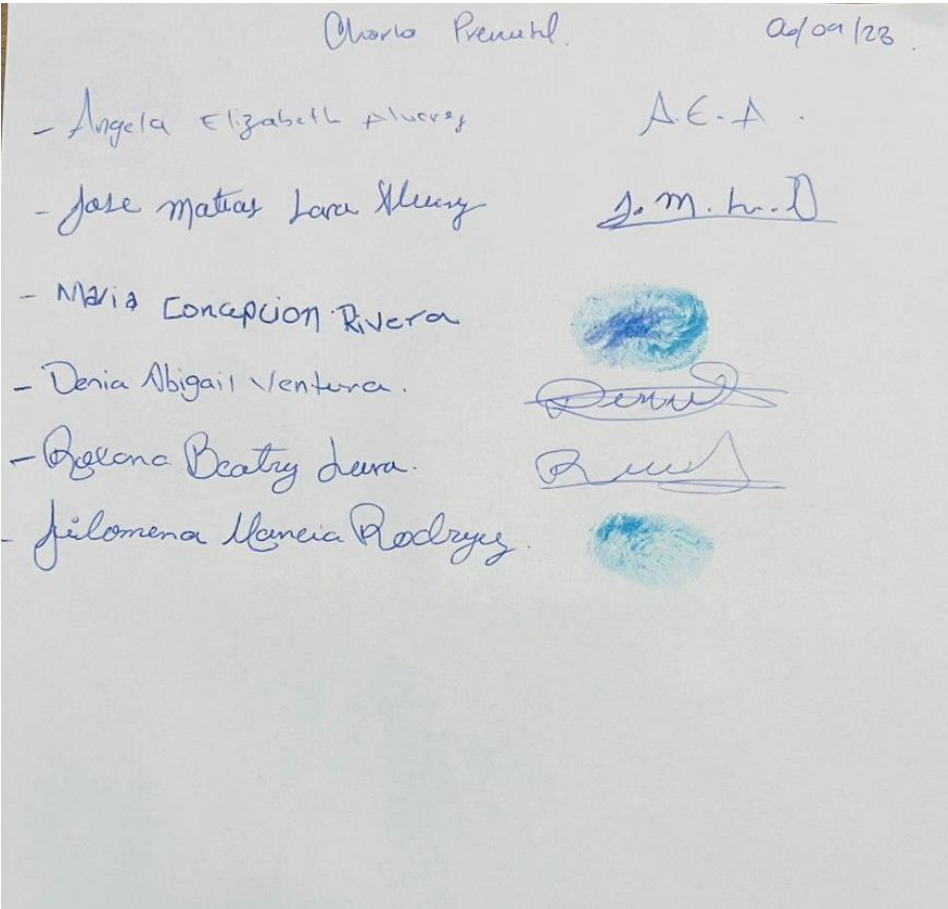 Charla Prenatal. 06/09/23.
- Angela Elizabeth Alvarez A.E.A.
- Jose Matias Lara J.M.L.
- Maria Concepcion Rivera
- Denia Abigail Ventura.
- Roxana Beatriz Lara.
- Filomena Mancia Rodryez.